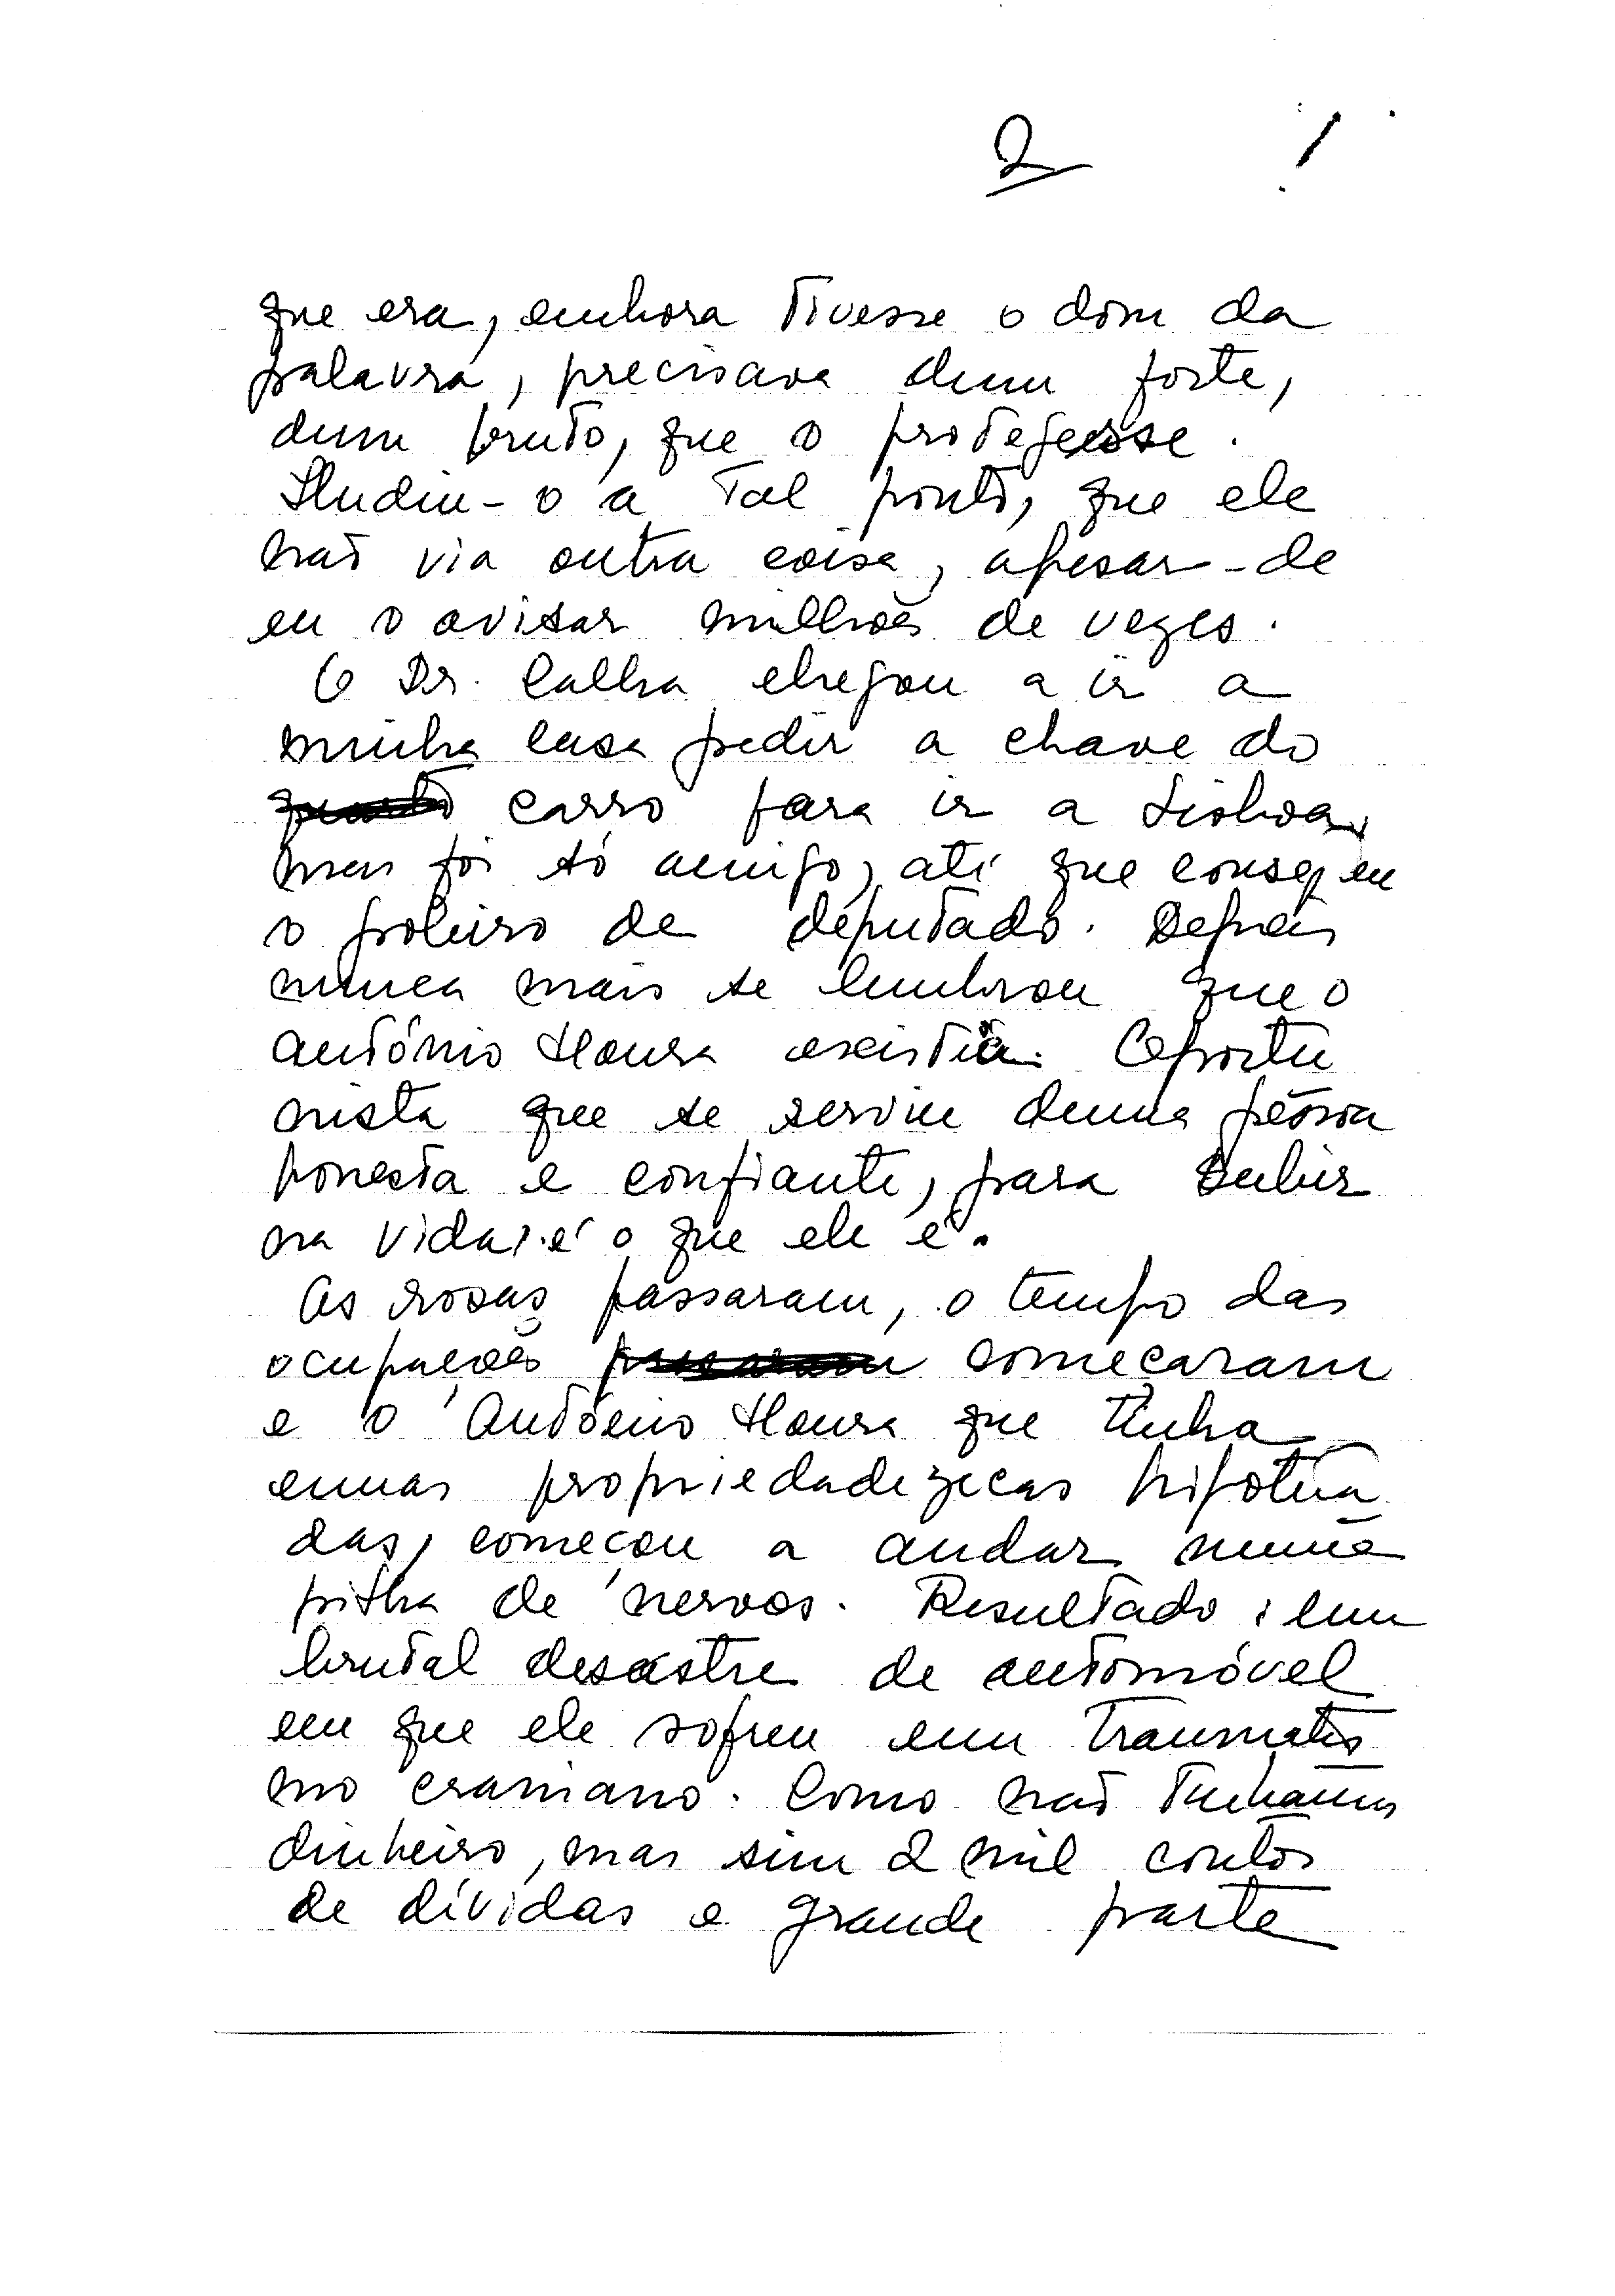 2
que era, embora tivesse o dom da
palavra, precisava dum forte,
dum bruto, que o protegesse.
Iludiu-o a tal ponto, que ele
não via outra coisa, apesar-de
eu o avisar milhões de vezes.
O Dr. Calha chegou a ir a
minha casa pedir a chave do
carro para ir a Lisboa,
mas foi só amigo, até que conseguiu
o poleiro de deputado. Depois
nunca mais se lembrou que o
António Moura existia. Oportu
nista que se serviu duma pessoa
honesta e confiante, para subir
na vida, é o que ele é.
As rosas passaram, o tempo das
ocupações começaram
e o António Moura que tinha
umas propriedadezecas hipoteca
das, começou a andar numa
pilha de nervos. Resultado: um
brutal desastre de automóvel
em que ele sofreu um traumatis
mo craniano. Como não tinhamos
dinheiro, mas sim 2 mil contos
de dívidas e grande parte